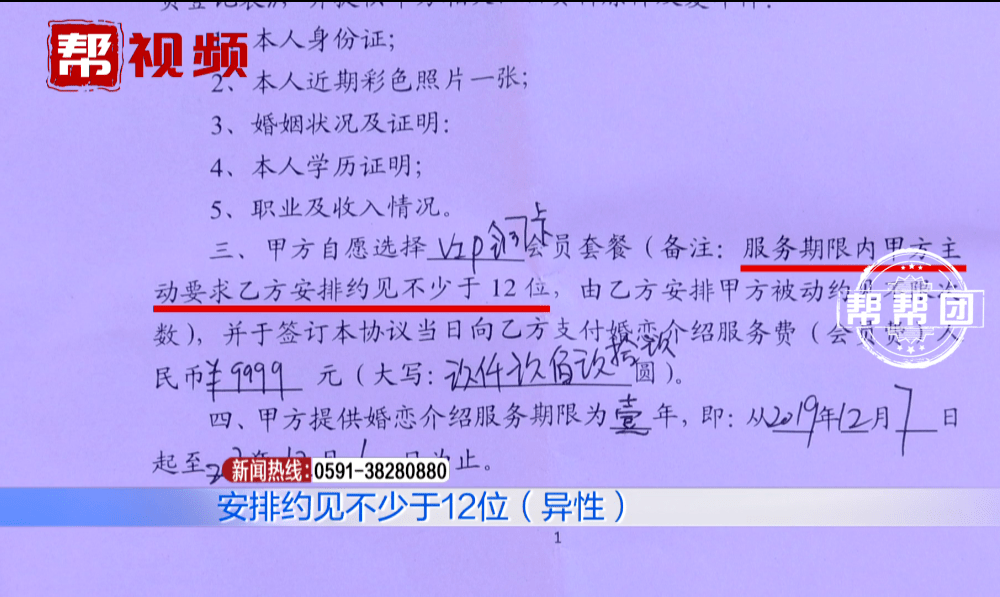 帮 视频
本人身份证；
2、本人近期彩色照片一张；
3、婚姻状况及证明：
4、本人学历证明；
5、职业及收入情况。
三、甲方自愿选择 VIP 会员套餐（备注：服务期限内甲方主
动要求乙方安排约见不少于 12 位，由乙方安排甲方被动约
帮帮团
数），并于签订本协议当日向乙方支付婚恋介绍服务费（会员费
民币¥9999 元（大写：玖仟玖佰玖拾玖圆）。
四、甲方提供婚恋介绍服务期限为壹年，即：从2019年12月7日
起至 止。
新闻热线：0591-38280880
安排约见不少于12位（异性）
1